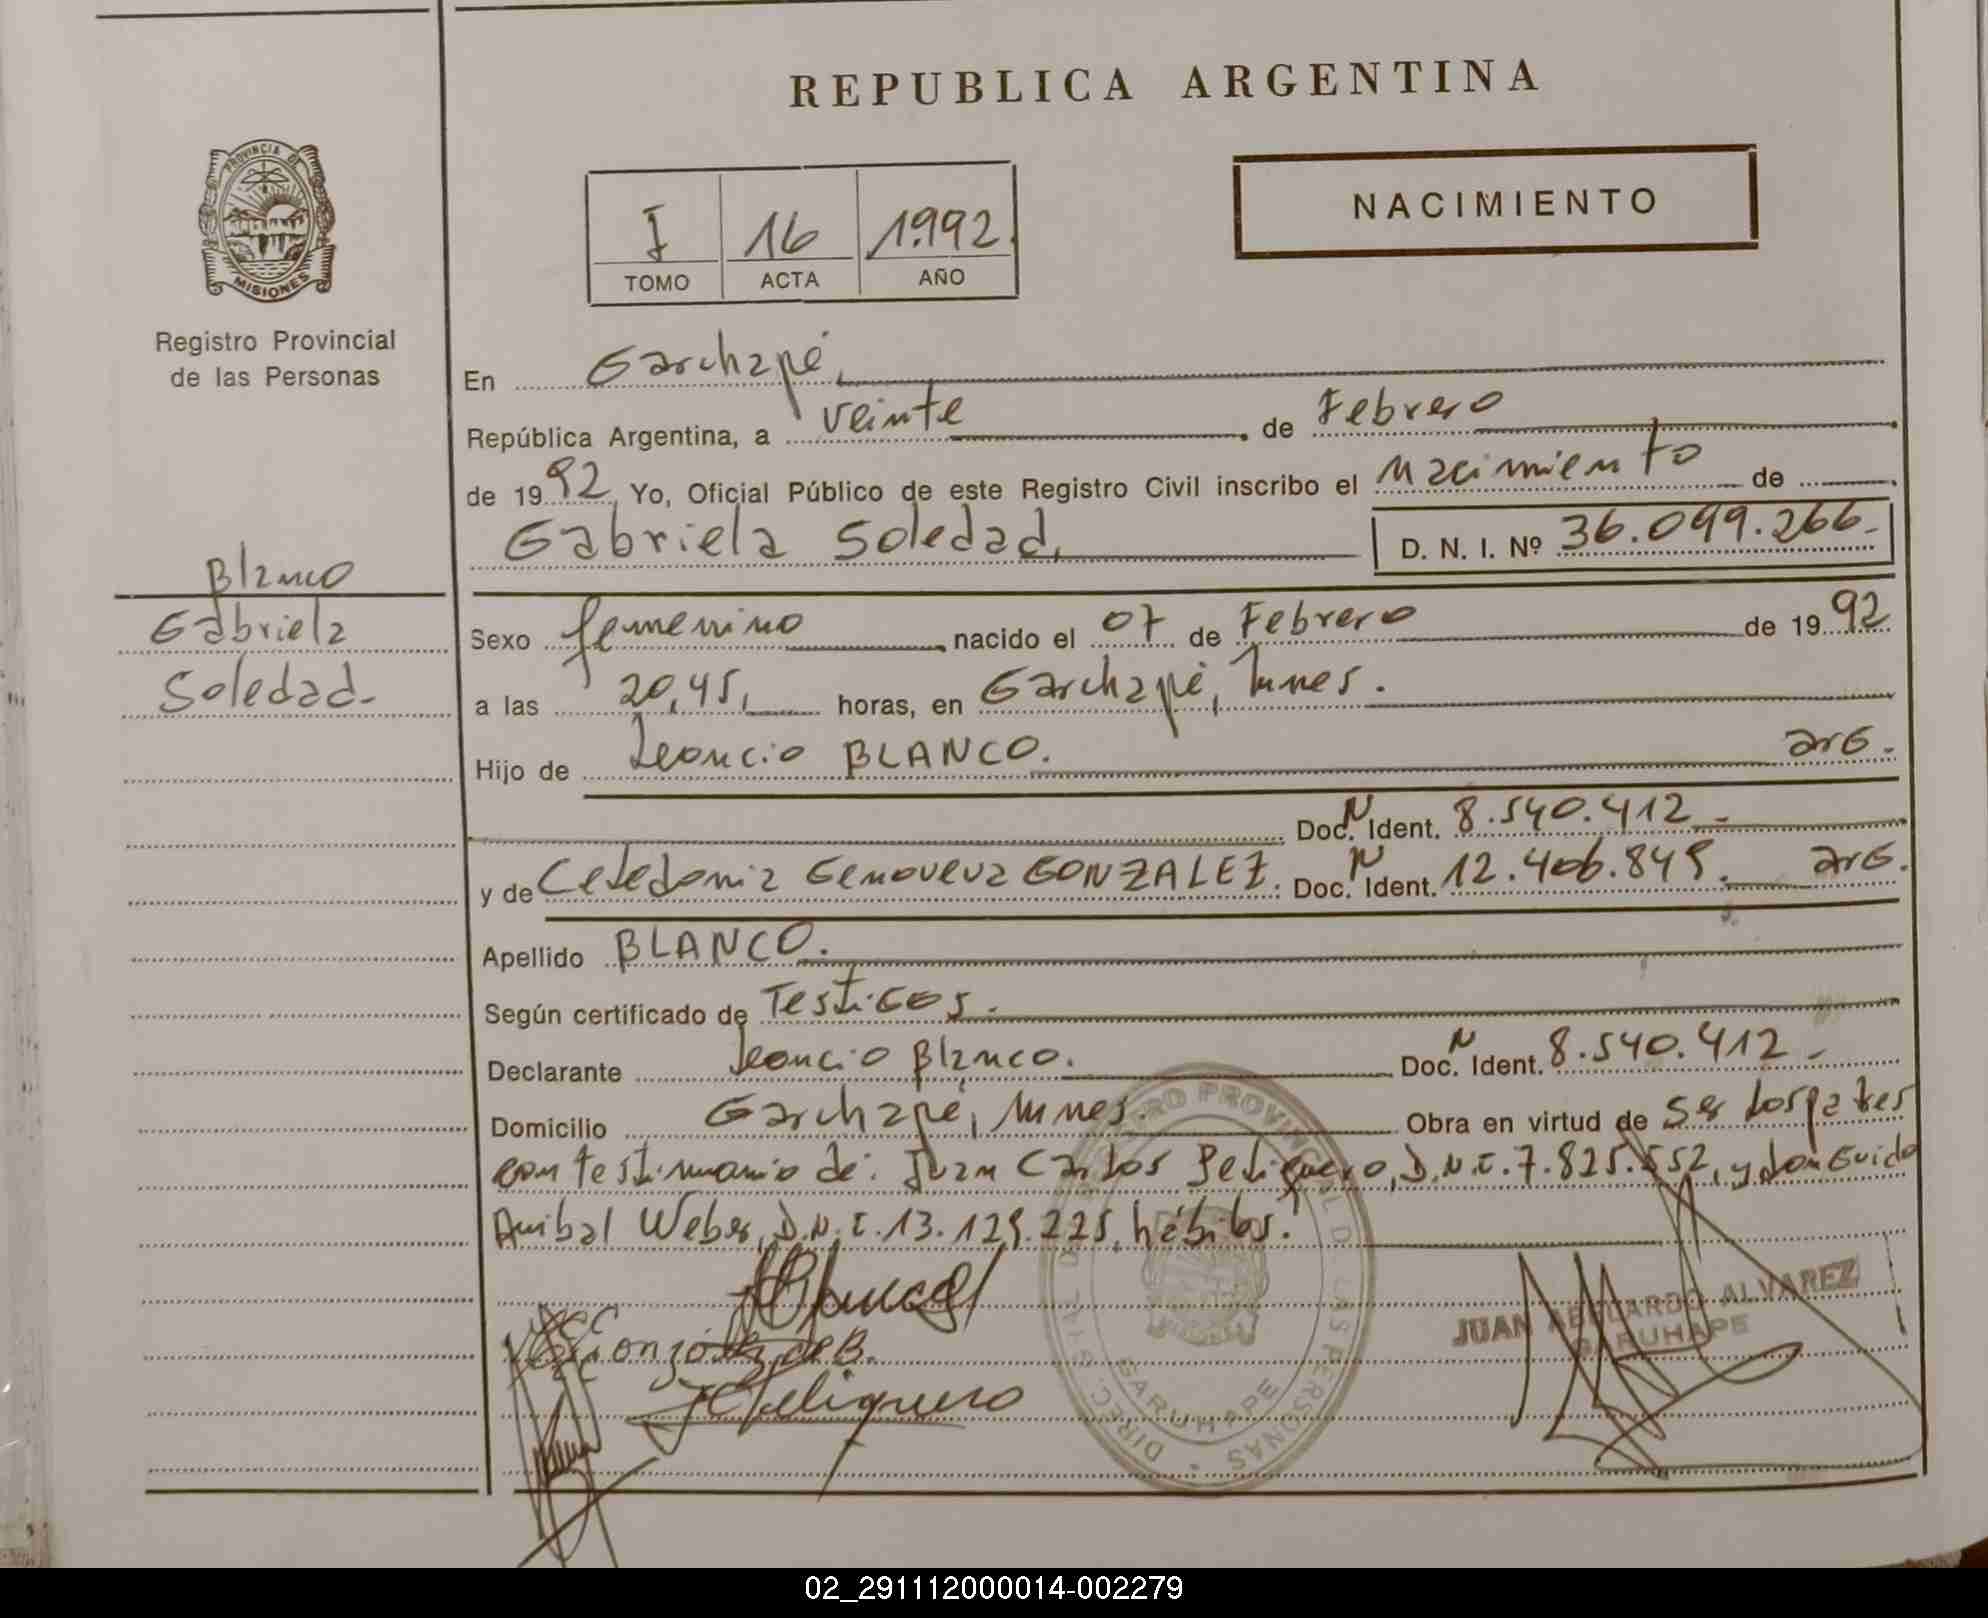 REPUBLICA ARGENTINA
PROVINCIA DE
MISIONES
NACIMIENTO
I 16 1992.
TOMO ACTA AÑO
Registro Provincial
de las Personas
En Garuhapé,
República Argentina, a veinte de Febrero
de 1992, Yo, Oficial Público de este Registro Civil inscribo el Nacimiento de
Gabriela Soledad, D. N. I. Nº 36.099.266.-
Blanco
Gabriela
Soledad.-
Sexo femenino nacido el 07 de Febrero de 1992
a las 20,45, horas, en Garuhapé, Mnes.
Hijo de Leoncio BLANCO. arG.
Doc. N Ident. 8.540.412.-
y de Celedonia Genoveva GONZALEZ. Doc. N Ident. 12.406.849. arG.
Apellido BLANCO.
Según certificado de TestiGos.-
Declarante Leoncio Blanco. Doc. N Ident. 8.540.412.-
Domicilio Garuhapé, Mnes. Obra en virtud de ser los padres
con testimonio de: Juan Carlos Peliquero, D.N.I. 7.825.552, y don Guido
Anibal Weber, D.N.I. 13.129.225, hábiles.
REGISTRO PROVINCIAL DE LAS PERSONAS
GARUHAPE
JUAN ABELARDO ALVAREZ
GARUHAPE
González de B.
JCPeliquero
02_291112000014-002279